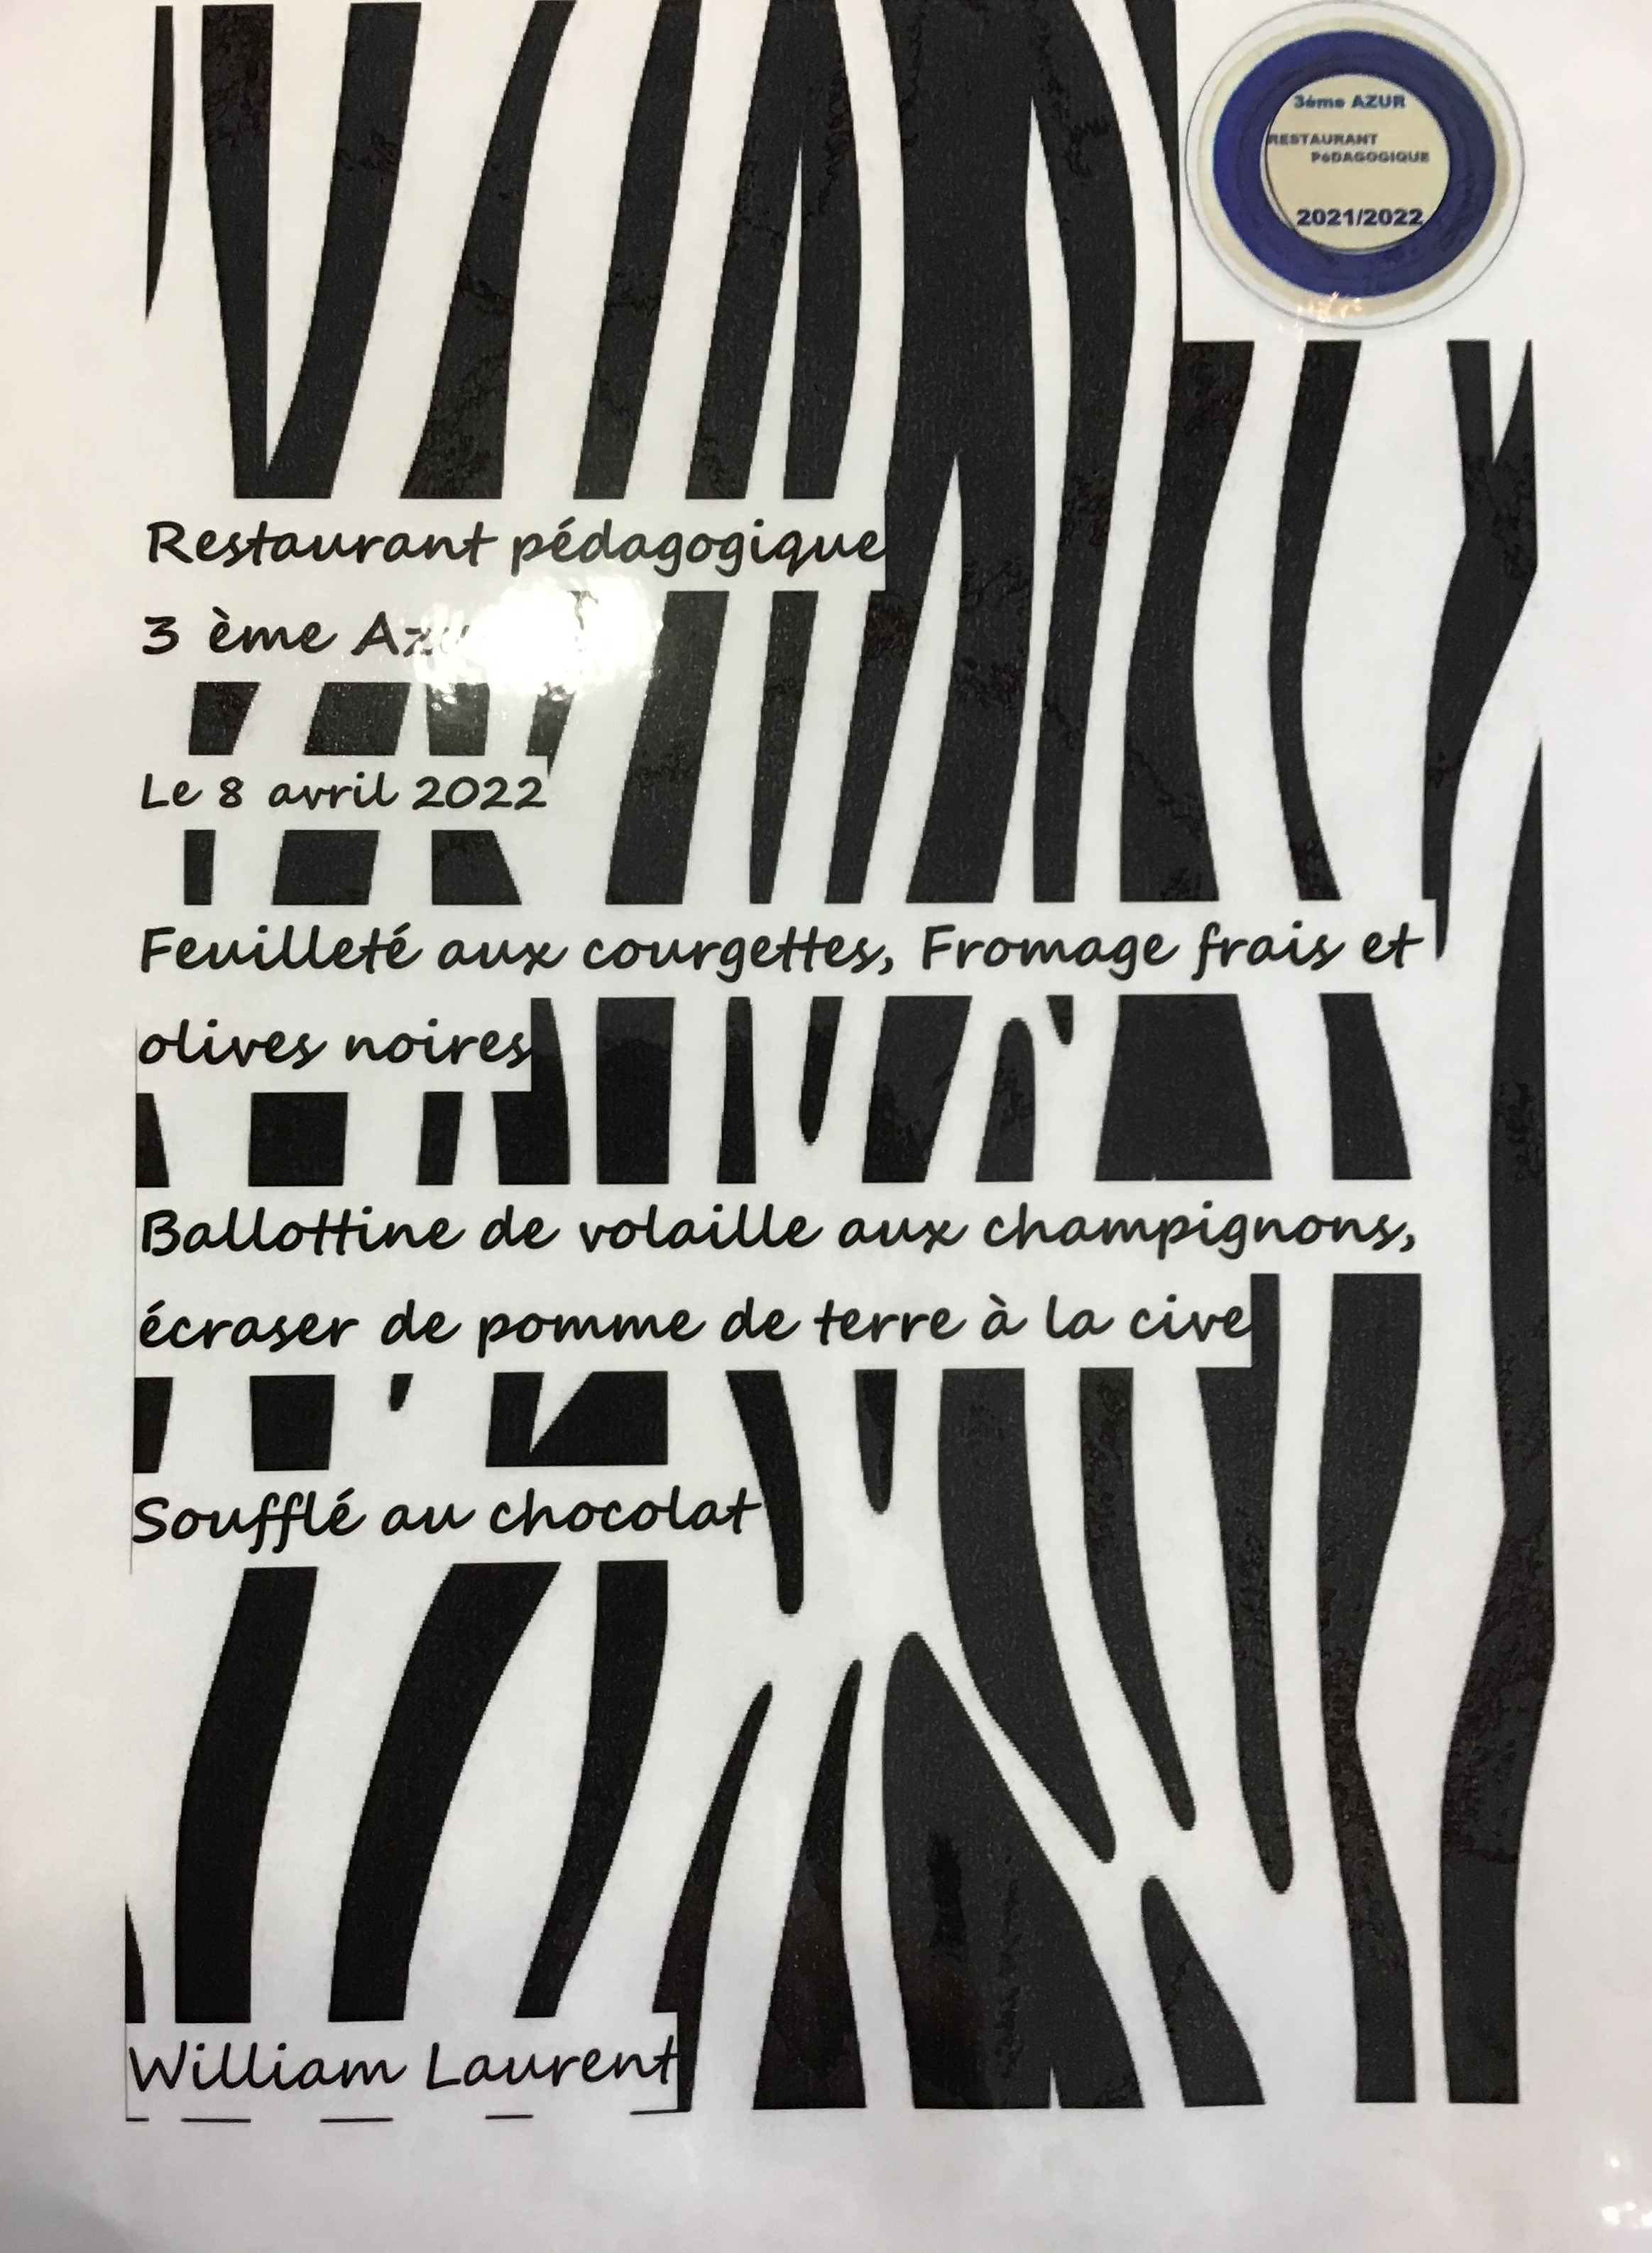 3éme AZUR
RESTAURANT
PéDAGOGIQUE
2021/2022
Restaurant pédagogique
3 ème
Le 8 avril 2022
Feuilleté aux courgettes, Fromage frais et
olives noires
Ballottine de volaille aux champignons,
écraser de pomme de terre à la cive
Soufflé au chocolat
William Laurent